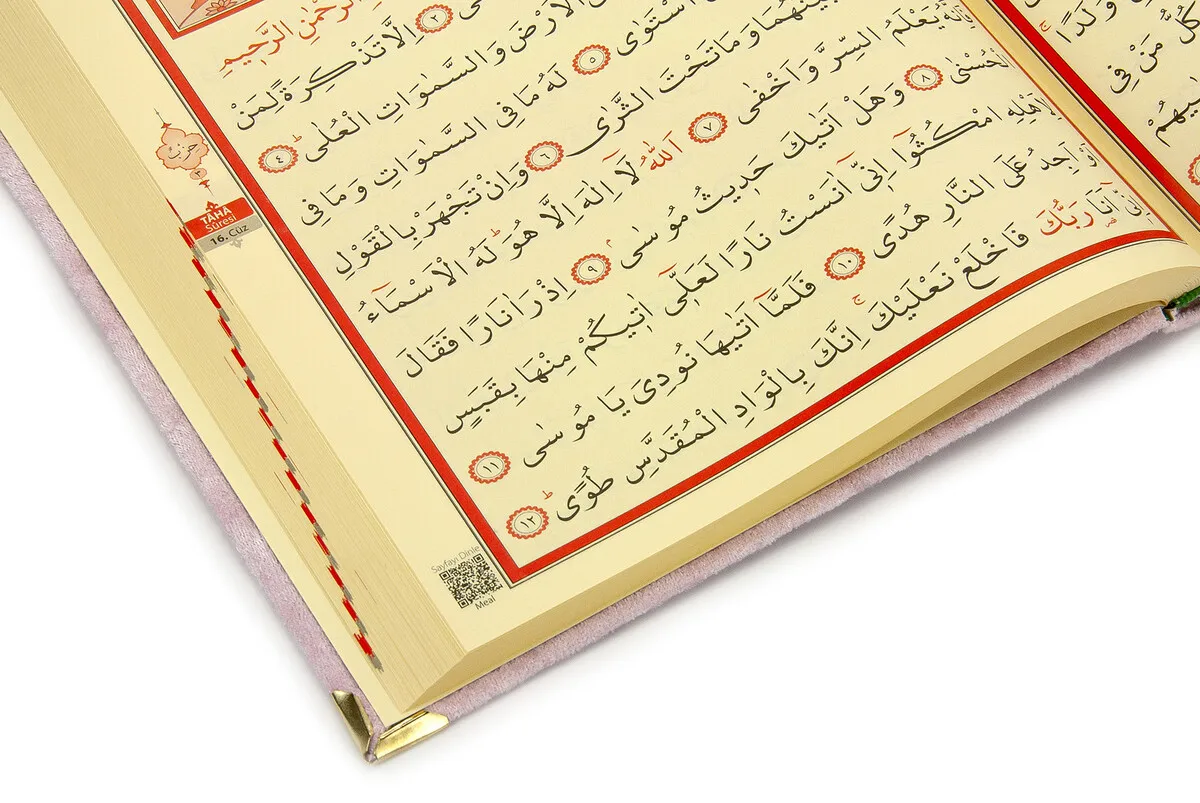 وَلَدًا
كُلُّ مَنْ فِى
الرَّحْمٰنِ الرَّحٖيمِ
٢ اِلَّا تَذْكِرَةً لِمَنْ
الْاَرْضَ وَالسَّمٰوَاتِ الْعُلٰىؕ ٤
اسْتَوٰى ٥ لَهُ مَا فِى السَّمٰوَاتِ وَمَا فِى
بَيْنَهُمَا وَمَا تَحْتَ الثَّرٰى ٦ وَاِنْ تَجْهَرْ بِالْقَوْلِ
يَعْلَمُ السِّرَّ وَاَخْفٰى ٧ اَللّٰهُ لَٓا اِلٰهَ اِلَّا هُوَؕ لَهُ الْاَسْمَٓاءُ
الْحُسْنٰى ٨ وَهَلْ اَتٰيكَ حَدٖيثُ مُوسٰى ٩ اِذْ رَاٰ نَارًا فَقَالَ
لِاَهْلِهِ امْكُثُٓوا اِنّٖٓى اٰنَسْتُ نَارًا لَعَلّٖٓى اٰتٖيكُمْ مِنْهَا بِقَبَسٍ
اَوْ اَجِدُ عَلَى النَّارِ هُدًى ١٠ فَلَمَّٓا اَتٰيهَا نُودِىَ يَا مُوسٰى ١١
اِنّٖٓى اَنَا رَبُّكَ فَاخْلَعْ نَعْلَيْكَۚ اِنَّكَ بِالْوَادِ الْمُقَدَّسِ طُوًىؕ ١٢
حزب
TÂHÂ
Sûresi
16. Cüz
Sayfayı Dinle
Meal